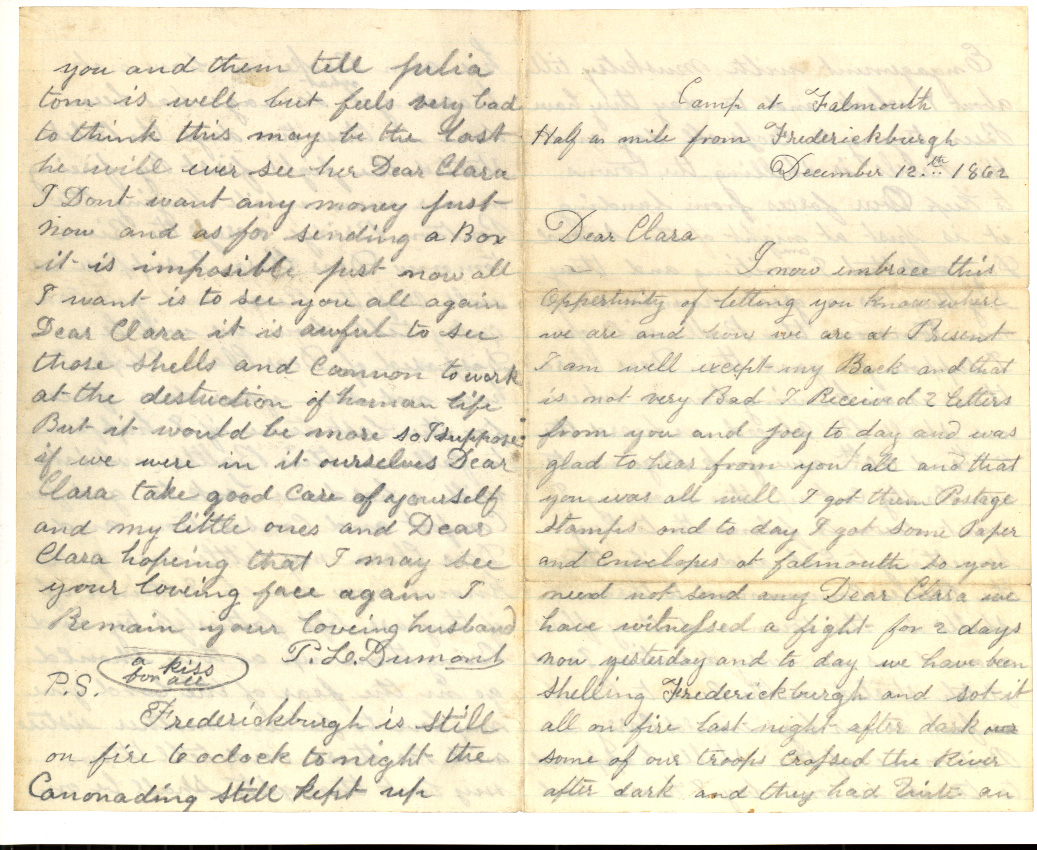 Camp at Falmouth
Half a mile from Frederickburgh
December 12.th 1862
Dear Clara
I now embrace this
Oppertunity of letting you know where
we are and how we are at Present
I am well except my Back and that
is not very Bad I Received 2 letters
from you and Joey to day and was
glad to hear from you all and that
you was all well I got them Postage
Stamps and to day I got some Paper
and Envelopes at falmouth so you
need not send any Dear Clara we
have witnessed a fight for 2 days
now yesterday and to day we have been
Shelling Frederickburgh and sot it
all on fire last night after dark
some of our troops Crossed the River
after dark and they had Quite an
you and them tell Julia
tom is well but feels very bad
to think this may be the last
he will ever see her Dear Clara
I Dont want any money just
now and as for sending a Box
it is imposible just now all
I want is to see you all again
Dear Clara it is awful to see
those shells and Cannon to work
at the destuction of human life
But it would be more so I suppose
if we were in it ourselves Dear
Clara take good care of yourself
and my little ones and Dear
Clara hopeing that I may see
your loveing face again I
Remain your loveing husband
T. L. Dumont
a kiss
for all
P.S.
Frederickburgh is still
on fire 6 oclock to night the
Canonading still kept up